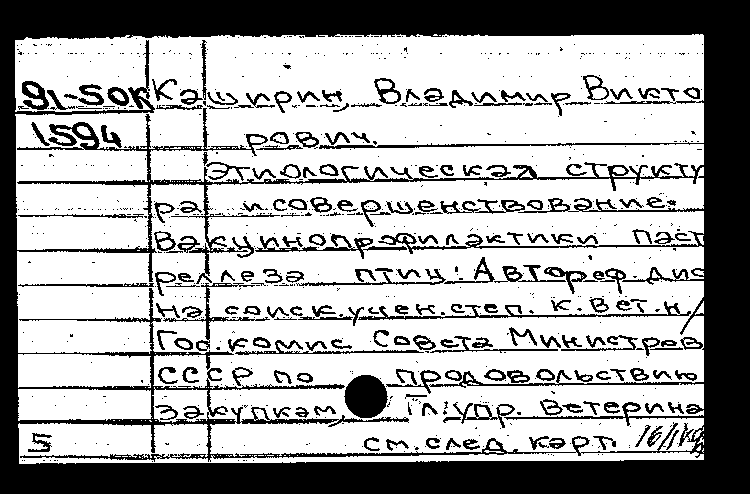 91-50К Каширин, Владимир Викто
1594 рович.
Этиологическая структу
ра и совершенствование
вакцинопрофилактики паст
реллеза птиц: Автореф. дис
на соиск. учен. степ. к. вет. н/
Гос. комис Совета Министров
СССР по продовольствию
закупкам, Гл. упр. ветерина
5 см. след. карт.